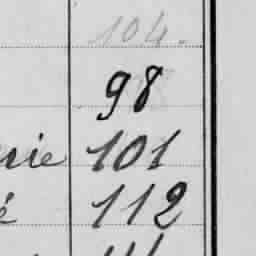 104.
98
rie 101
é 112